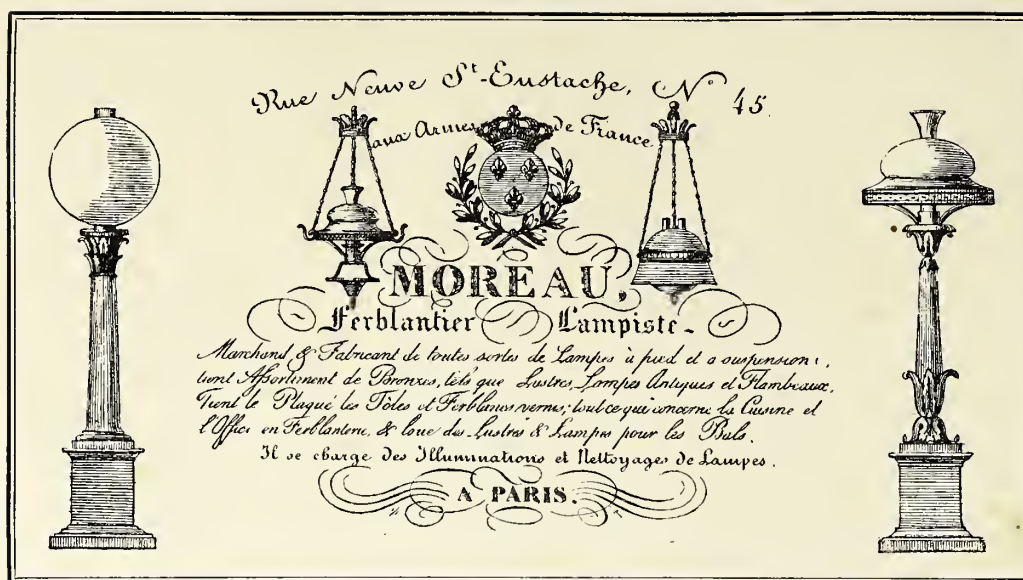 Rue Neuve St-Eustache, No 45
aux Armes de France
MOREAU,
Ferblantier Lampiste-
Marchand & Fabricant de toutes sortes de Lampes à pied et a suspension,
tient Assortiment de Bronzes, tels que Lustres, Lampes Antiques et Flambeaux,
Tient le Plaqué les Tôles et Ferblancs vernis; tout ce qui concerne la Cuisine et
l'Office en Ferblanterie, & loue des Lustres & Lampes pour les Bals.
Il se charge des Illuminations et Nettoyages de Lampes.
A PARIS.